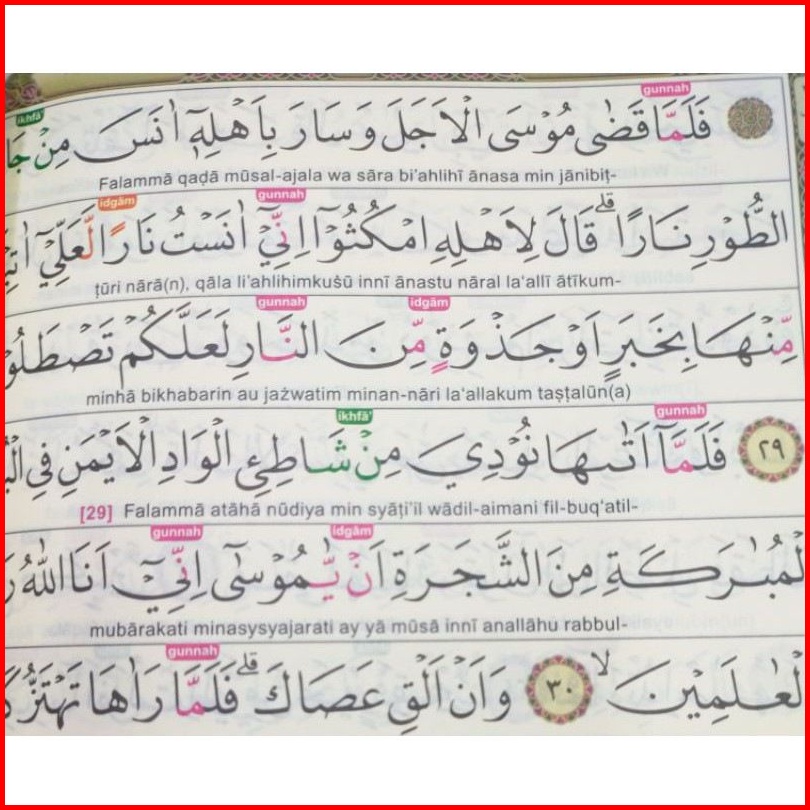 gunnah ikhfā'
فَلَمَّا قَضٰى مُوْسَى الْاَجَلَ وَسَارَ بِاَهْلِهٖٓ اٰنَسَ مِنْ
Falammā qaḍā mūsal-ajala wa sāra bi'ahlihī ānasa min jānibiṭ-
gunnah idgām
الطُّوْرِ نَارًاۗ قَالَ لِاَهْلِهِ امْكُثُوْٓا اِنِّيْٓ اٰنَسْتُ نَارًا لَّعَلِّيْٓ
ṭūri nārā(n), qāla li'ahlihimkuṡū innī ānastu nāral la'allī ātīkum-
idgām gunnah
مِّنْهَا بِخَبَرٍ اَوْ جَذْوَةٍ مِّنَ النَّارِ لَعَلَّكُمْ
minhā bikhabarin au jażwatim minan-nāri la'allakum taṣṭalūn(a)
gunnah ikhfā'
٢٩ فَلَمَّآ اَتٰىهَا نُوْدِيَ مِنْ شَاطِئِ الْوَادِ الْاَيْمَنِ فِى
[29] Falammā atāhā nūdiya min syāṭi'il wādil-aimani fil-buq'atil-
idgām gunnah
الْمُبٰرَكَةِ مِنَ الشَّجَرَةِ اَنْ يّٰمُوْسٰٓى اِنِّيْٓ اَنَا اللّٰهُ
mubārakati minasysyajarati ay yā mūsā innī anallāhu rabbul-
gunnah
الْعٰلَمِيْنَ ۙ ٣٠ وَاَنْ اَلْقِ عَصَاكَ ۗفَلَمَّا رَاٰهَا